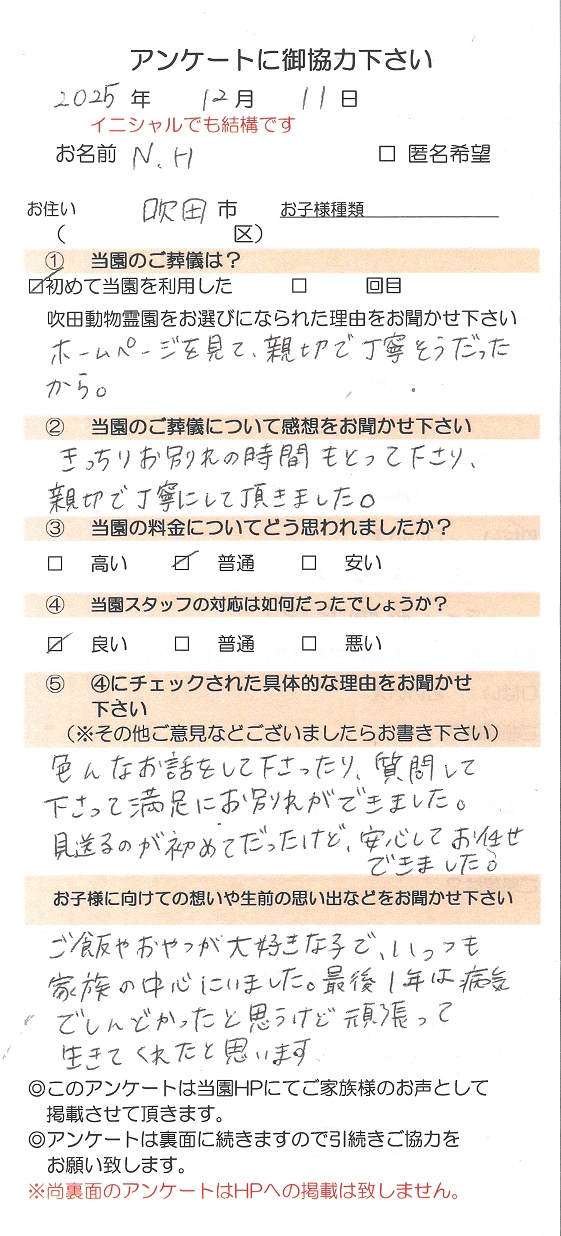 アンケートに御協力下さい
2025年 12月 11日
イニシャルでも結構です
お名前 N.H □ 匿名希望
お住い 吹田市 お子様種類
( 区)
① 当園のご葬儀は？
☑初めて当園を利用した □ 回目
吹田動物霊園をお選びになられた理由をお聞かせ下さい
ホームページを見て、親切で丁寧そうだった
から。
② 当園のご葬儀について感想をお聞かせ下さい
きっちりお別れの時間もとって下さり、
親切で丁寧にして頂きました。
③ 当園の料金についてどう思われましたか？
□ 高い ☑ 普通 □ 安い
④ 当園スタッフの対応は如何だったでしょうか？
☑ 良い □ 普通 □ 悪い
⑤ ④にチェックされた具体的な理由をお聞かせ
下さい
（※その他ご意見などございましたらお書き下さい）
色んなお話をして下さったり、質問して
下さって満足にお別れができました。
見送るのが初めてだったけど、安心してお任せ
できました。
お子様に向けての想いや生前の思い出などをお聞かせ下さい
ご飯やおやつが大好きな子で、いっつも
家族の中心にいました。最後1年は病気
でしんどかったと思うけど頑張って
生きてくれたと思います
◎このアンケートは当園HPにてご家族様のお声として
掲載させて頂きます。
◎アンケートは裏面に続きますので引続きご協力を
お願い致します。
※尚裏面のアンケートはHPへの掲載は致しません。